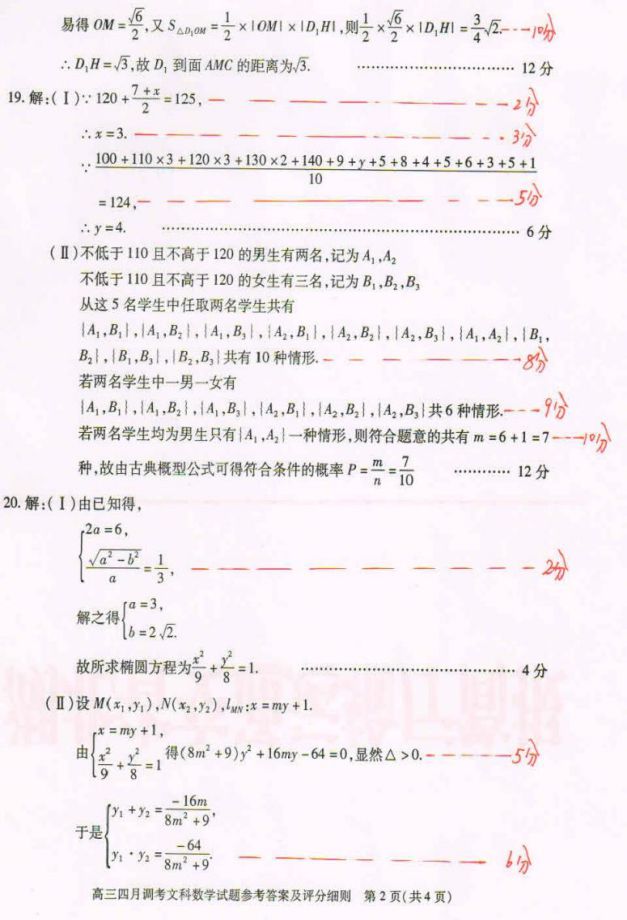 易得 OM = √6/2, 又 S△D₁OM = 1/2 × |OM| × |D₁H|, 则 1/2 × √6/2 × |D₁H| = 3/4 √2. 10分
∴ D₁H = √3, 故 D₁ 到面 AMC 的距离为 √3. ………………………… 12 分
19. 解:(Ⅰ) ∵ 120 + (7 + x)/2 = 125, 2分
∴ x = 3. 3分
∵ (100 + 110 × 3 + 120 × 3 + 130 × 2 + 140 + 9 + y + 5 + 8 + 4 + 5 + 6 + 3 + 5 + 1)/10
= 124, 5分
∴ y = 4. ………………………… 6 分
(Ⅱ) 不低于 110 且不高于 120 的男生有两名, 记为 A₁, A₂
不低于 110 且不高于 120 的女生有三名, 记为 B₁, B₂, B₃
从这 5 名学生中任取两名学生共有
{A₁, B₁}, {A₁, B₂}, {A₁, B₃}, {A₂, B₁}, {A₂, B₂}, {A₂, B₃}, {A₁, A₂}, {B₁,
B₂}, {B₁, B₃}, {B₂, B₃} 共有 10 种情形. 8分
若两名学生中一男一女有
{A₁, B₁}, {A₁, B₂}, {A₁, B₃}, {A₂, B₁}, {A₂, B₂}, {A₂, B₃} 共 6 种情形. 9分
若两名学生均为男生只有 {A₁, A₂} 一种情形, 则符合题意的共有 m = 6 + 1 = 7 10分
种, 故由古典概型公式可得符合条件的概率 P = m/n = 7/10 ………… 12 分
20. 解:(Ⅰ) 由已知得,
{ 2a = 6,
√(a² − b²)/a = 1/3, 2分
解之得 { a = 3,
b = 2√2.
故所求椭圆方程为 x²/9 + y²/8 = 1. ………………………… 4 分
(Ⅱ) 设 M(x₁, y₁), N(x₂, y₂), l_MN: x = my + 1.
由 { x = my + 1,
x²/9 + y²/8 = 1 得 (8m² + 9)y² + 16my − 64 = 0, 显然 △ > 0. 5分
于是 { y₁ + y₂ = −16m/(8m² + 9),
y₁ · y₂ = −64/(8m² + 9). 6分
高三四月调考文科数学试题参考答案及评分细则 第 2 页(共 4 页)